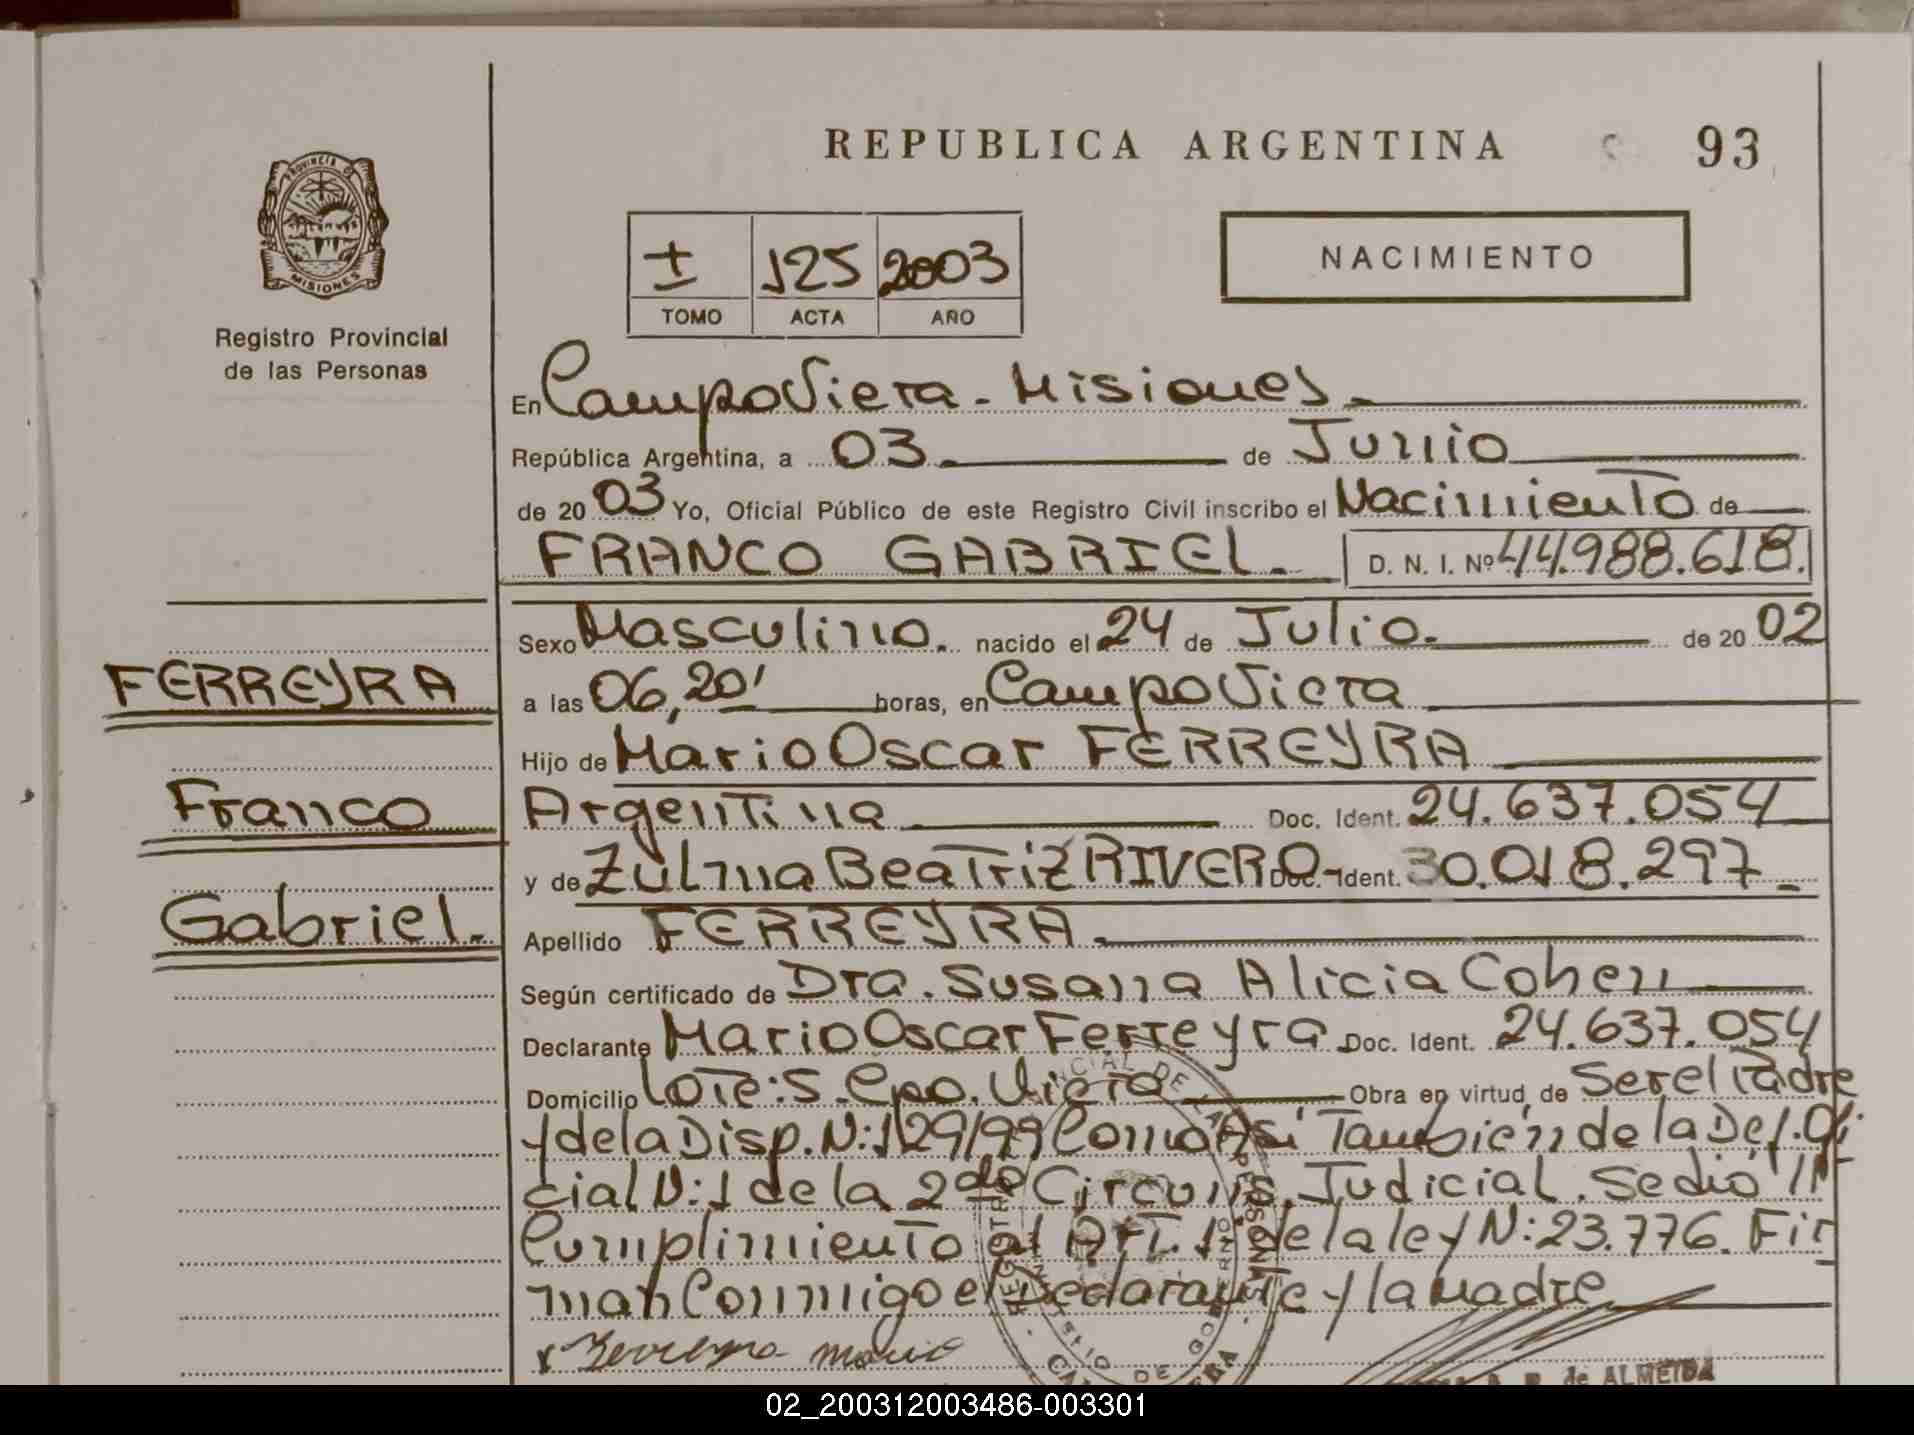 REPUBLICA ARGENTINA 93
PROVINCIA DE
MISIONES
Registro Provincial
de las Personas
± 125 2003
TOMO ACTA AÑO
NACIMIENTO
En Campo Viera - Misiones.
República Argentina, a 03 de Junio
de 2003 Yo, Oficial Público de este Registro Civil inscribo el Nacimiento de
FRANCO GABRIEL. D. N. I. Nº 44.988.618.
Sexo Masculino. nacido el 24 de Julio. de 20 02
FERREYRA
a las 06,20' horas, en Campo Viera
Hijo de Mario Oscar FERREYRA
Franco
Argentina Doc. Ident. 24.637.054
y de Zulma Beatriz RIVERO- Doc. Ident. 30.018.297.
Gabriel.
Apellido FERREYRA.
Según certificado de Dra. Susana Alicia Cohen
Declarante Mario Oscar Ferreyra Doc. Ident. 24.637.054
Domicilio Lote: 5. Cpo. Viera Obra en virtud de Ser el Padre
y de la Disp. N: 129/99 Como Así También de la Def. Ofi
cial N: 1 de la 2da Circuns. Judicial. Se dió
Cumplimiento al Art. 1 de la ley N: 23.776. Fir
man Conmigo el Declarante y la Madre
Ferreyra Mario
de ALMEIDA
02_200312003486-003301